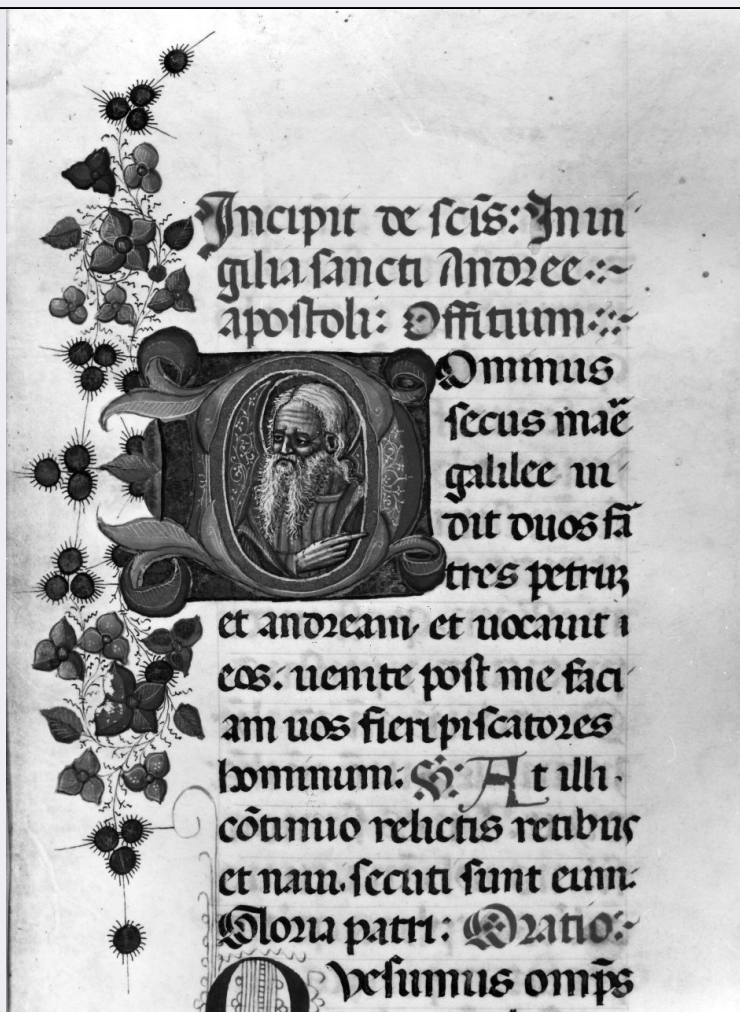 Incipit de scīs: In ui
gilia sancti Andree
apostoli: Offitium:
Dominus
secus maē
galilee ui
dit duos fā
tres petruꝫ
et andream et uocauit
eos: uenite post me faci
am uos fieri piscatores
hominum. At illi
cōtinuo relictis retibus
et naui secuti sunt eum.
Gloria patri: Oratio:
Qvesumus omp̄s